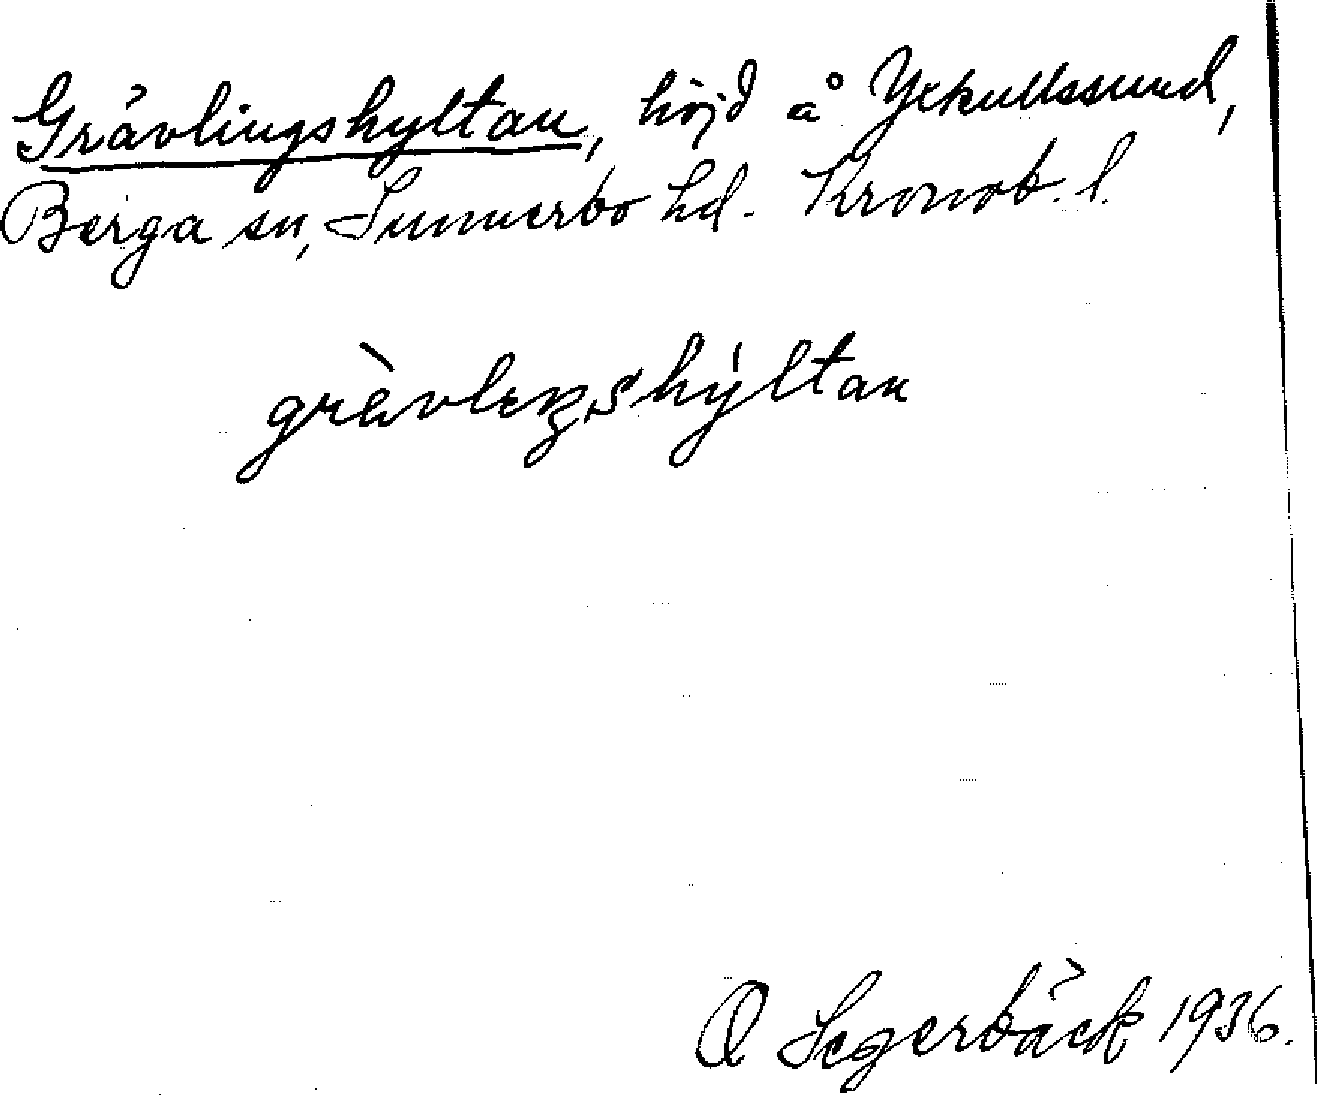 Grävlingshyltan, höjd å Yxkullssund,
Berga sn, Sunnerbo hd. Kronob. l.
grὲvleŋshýltan
O Segerbäck 1936.